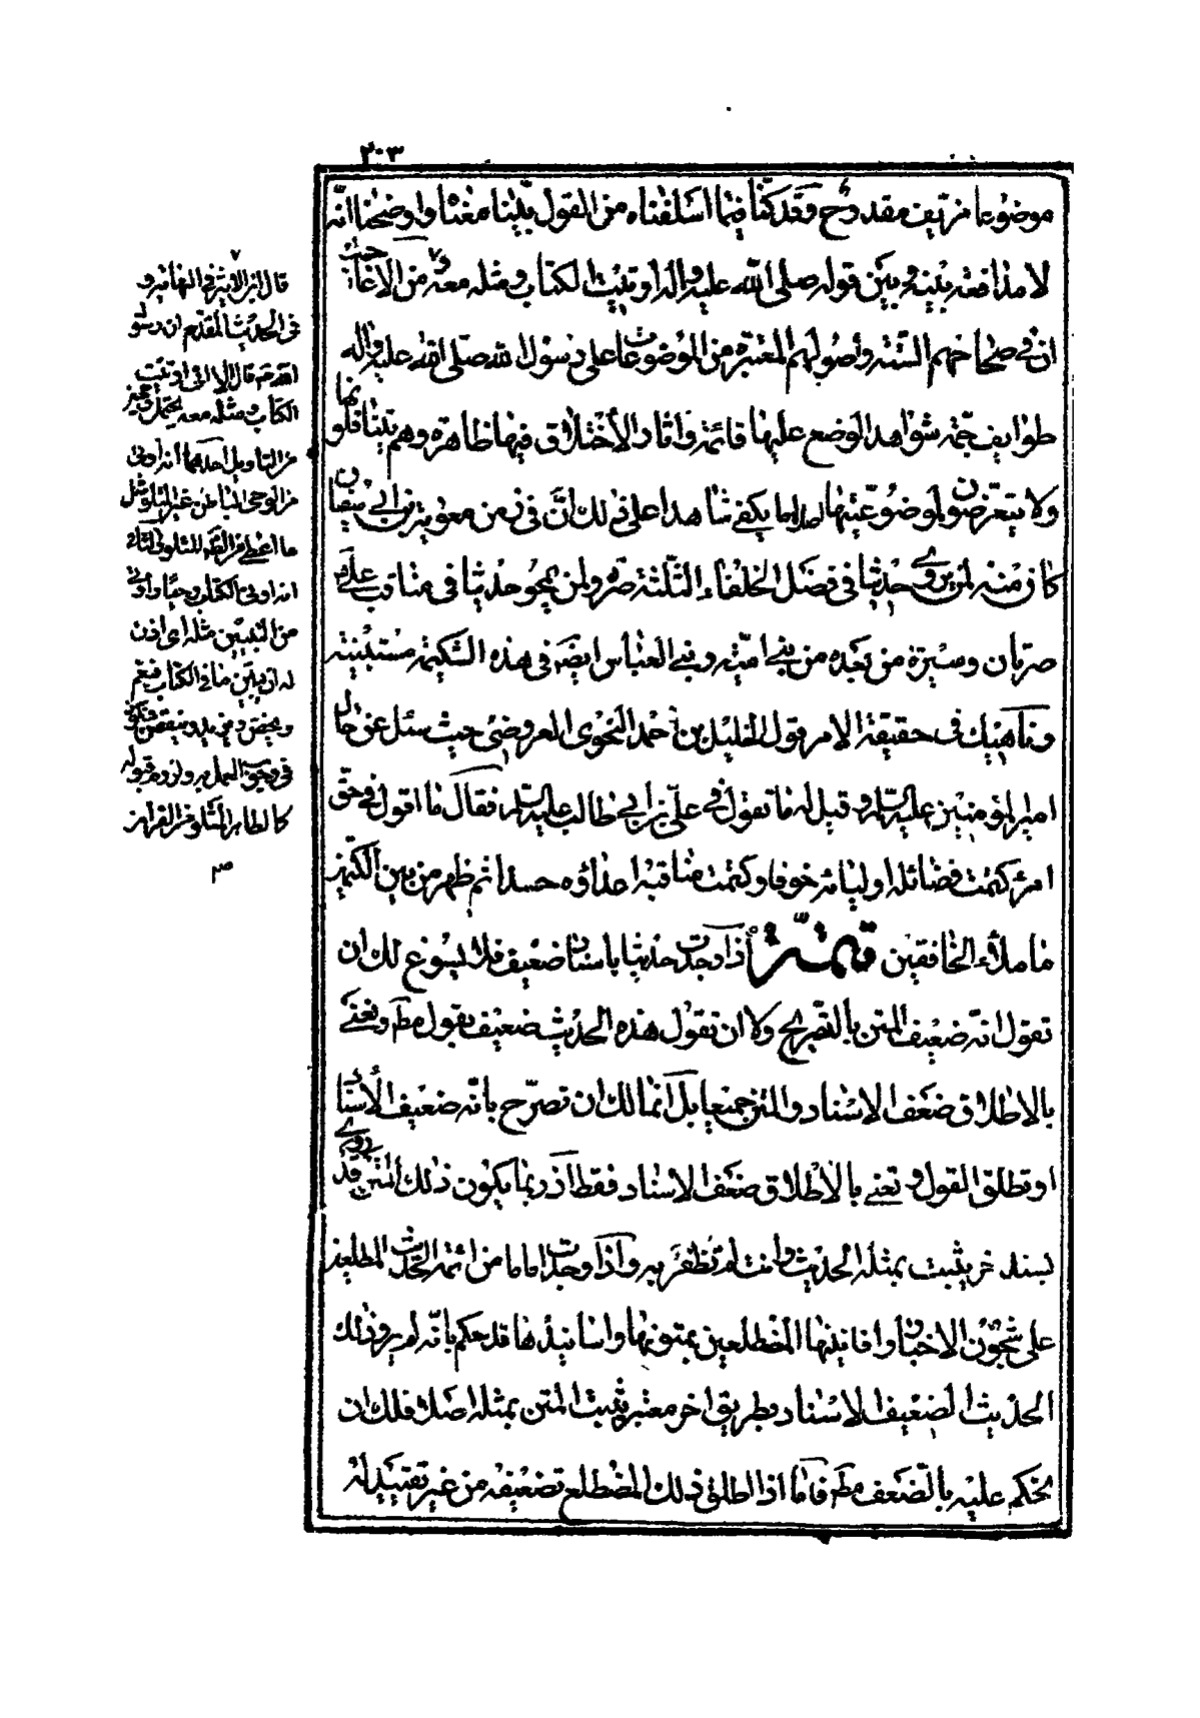 ٢٠٣
موضوعا مزيف مقدوح وقد كنا فيما اسلفناه من القول بيّنا مغناه واوضحنا انّه
لا مدافعة بينه وبين قوله صلى الله عليه واله اوتيت الكتاب ومثله معه من الاغاجيب
ان في صحاحهم الستة واصولهم المعتبرة من الموضوعات على رسول الله صلى الله عليه واله
طوايف جمة شواهد الوضع عليها قائمة واثار الاختلاق فيها ظاهرة وهم يتناقلونها
ولا يتعرضون لموضوعيتها اصلا ما يكفي شاهدا على ذلك انّ في زمن معوية بن ابي سفيان
كان منه لمن يروي حديثا في فضل الخلفاء الثلثة صره ولمن يمحو حديثا في مناقب علي عليه السلام
صرتان وسيرة من بعده من بني امية وبني العباس ايضا في هذه الشكيمة مستبينة
وناهيك في حقيقة الامر قول الخليل بن احمد النحوي العروضي حيث سئل عن حال
امير المؤمنين عليه السلم وقيل له ما تقول في علي بن ابي طالب عليه السلم فقال ما اقول في حق
امرئ كتمت فضائله اولياؤه خوفا وكتمت مناقبه اعداؤه حسدا ثم ظهر من بين الكتمين
ما ملأ الخافقين تتمّة اذا وجدت حديثا باسناد ضعيف فلا يسوغ لك ان
تقول انّه ضعيف المتن بالتصريح ولا ان تقول هذه الحديث ضعيف بقول مط وتعني
بالاطلاق ضعف الاسناد والمتن جميعا بل انما لك ان تصرّح بانّه ضعيف الاسناد
او تطلق القول وتعني بالاطلاق ضعف الاسناد فقط اذ ربما يكون ذلك المتن قد روي
بسند اخر يثبت بمثله الحديث وانت لم تظفر به واذا وجدت اماما من ائمة الحديث المطلعين
على شجون الاخبار وافانينها المضطلعين بمتونها واسانيدها قد حكم بانّه لم يرو ذلك
الحديث الضعيف الاسناد بطريق اخر معتبر يثبت المتن بمثله اصلا فلك ان
تحكم عليه بالضعف مط فاما اذا اطلق ذلك المضطلع تضعيفه من غير تقييد له
قال ابن الاثير في النهاية و
في الحديث المقدم ان رسول
الله ص قال الا اني اوتيت
الكتاب ومثله معه يحتمل وجهين
من التاويل احدهما انه اوتي
من الوحي الباطن غير المتلو مثل
ما اعطي من الظاهر المتلو والثاني
انه اوتي الكتاب وحيا واوتي
من التبيين مثله اي اذن
له ان يبيّن ما في الكتاب فيعم
ويخص ويزيد وينقص فيكون
في وجوب العمل به ولزوم قبوله
كالظاهر المتلو من القران